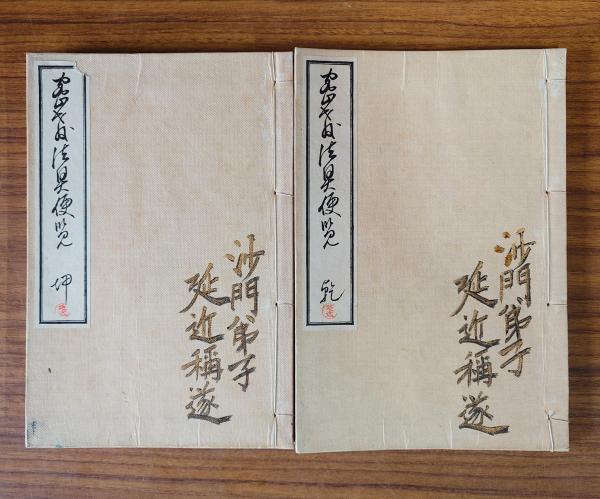 沙門弟子
延近稱遂
密教法具便覧 乾
沙門弟子
延近稱遂
密教法具便覧 坤